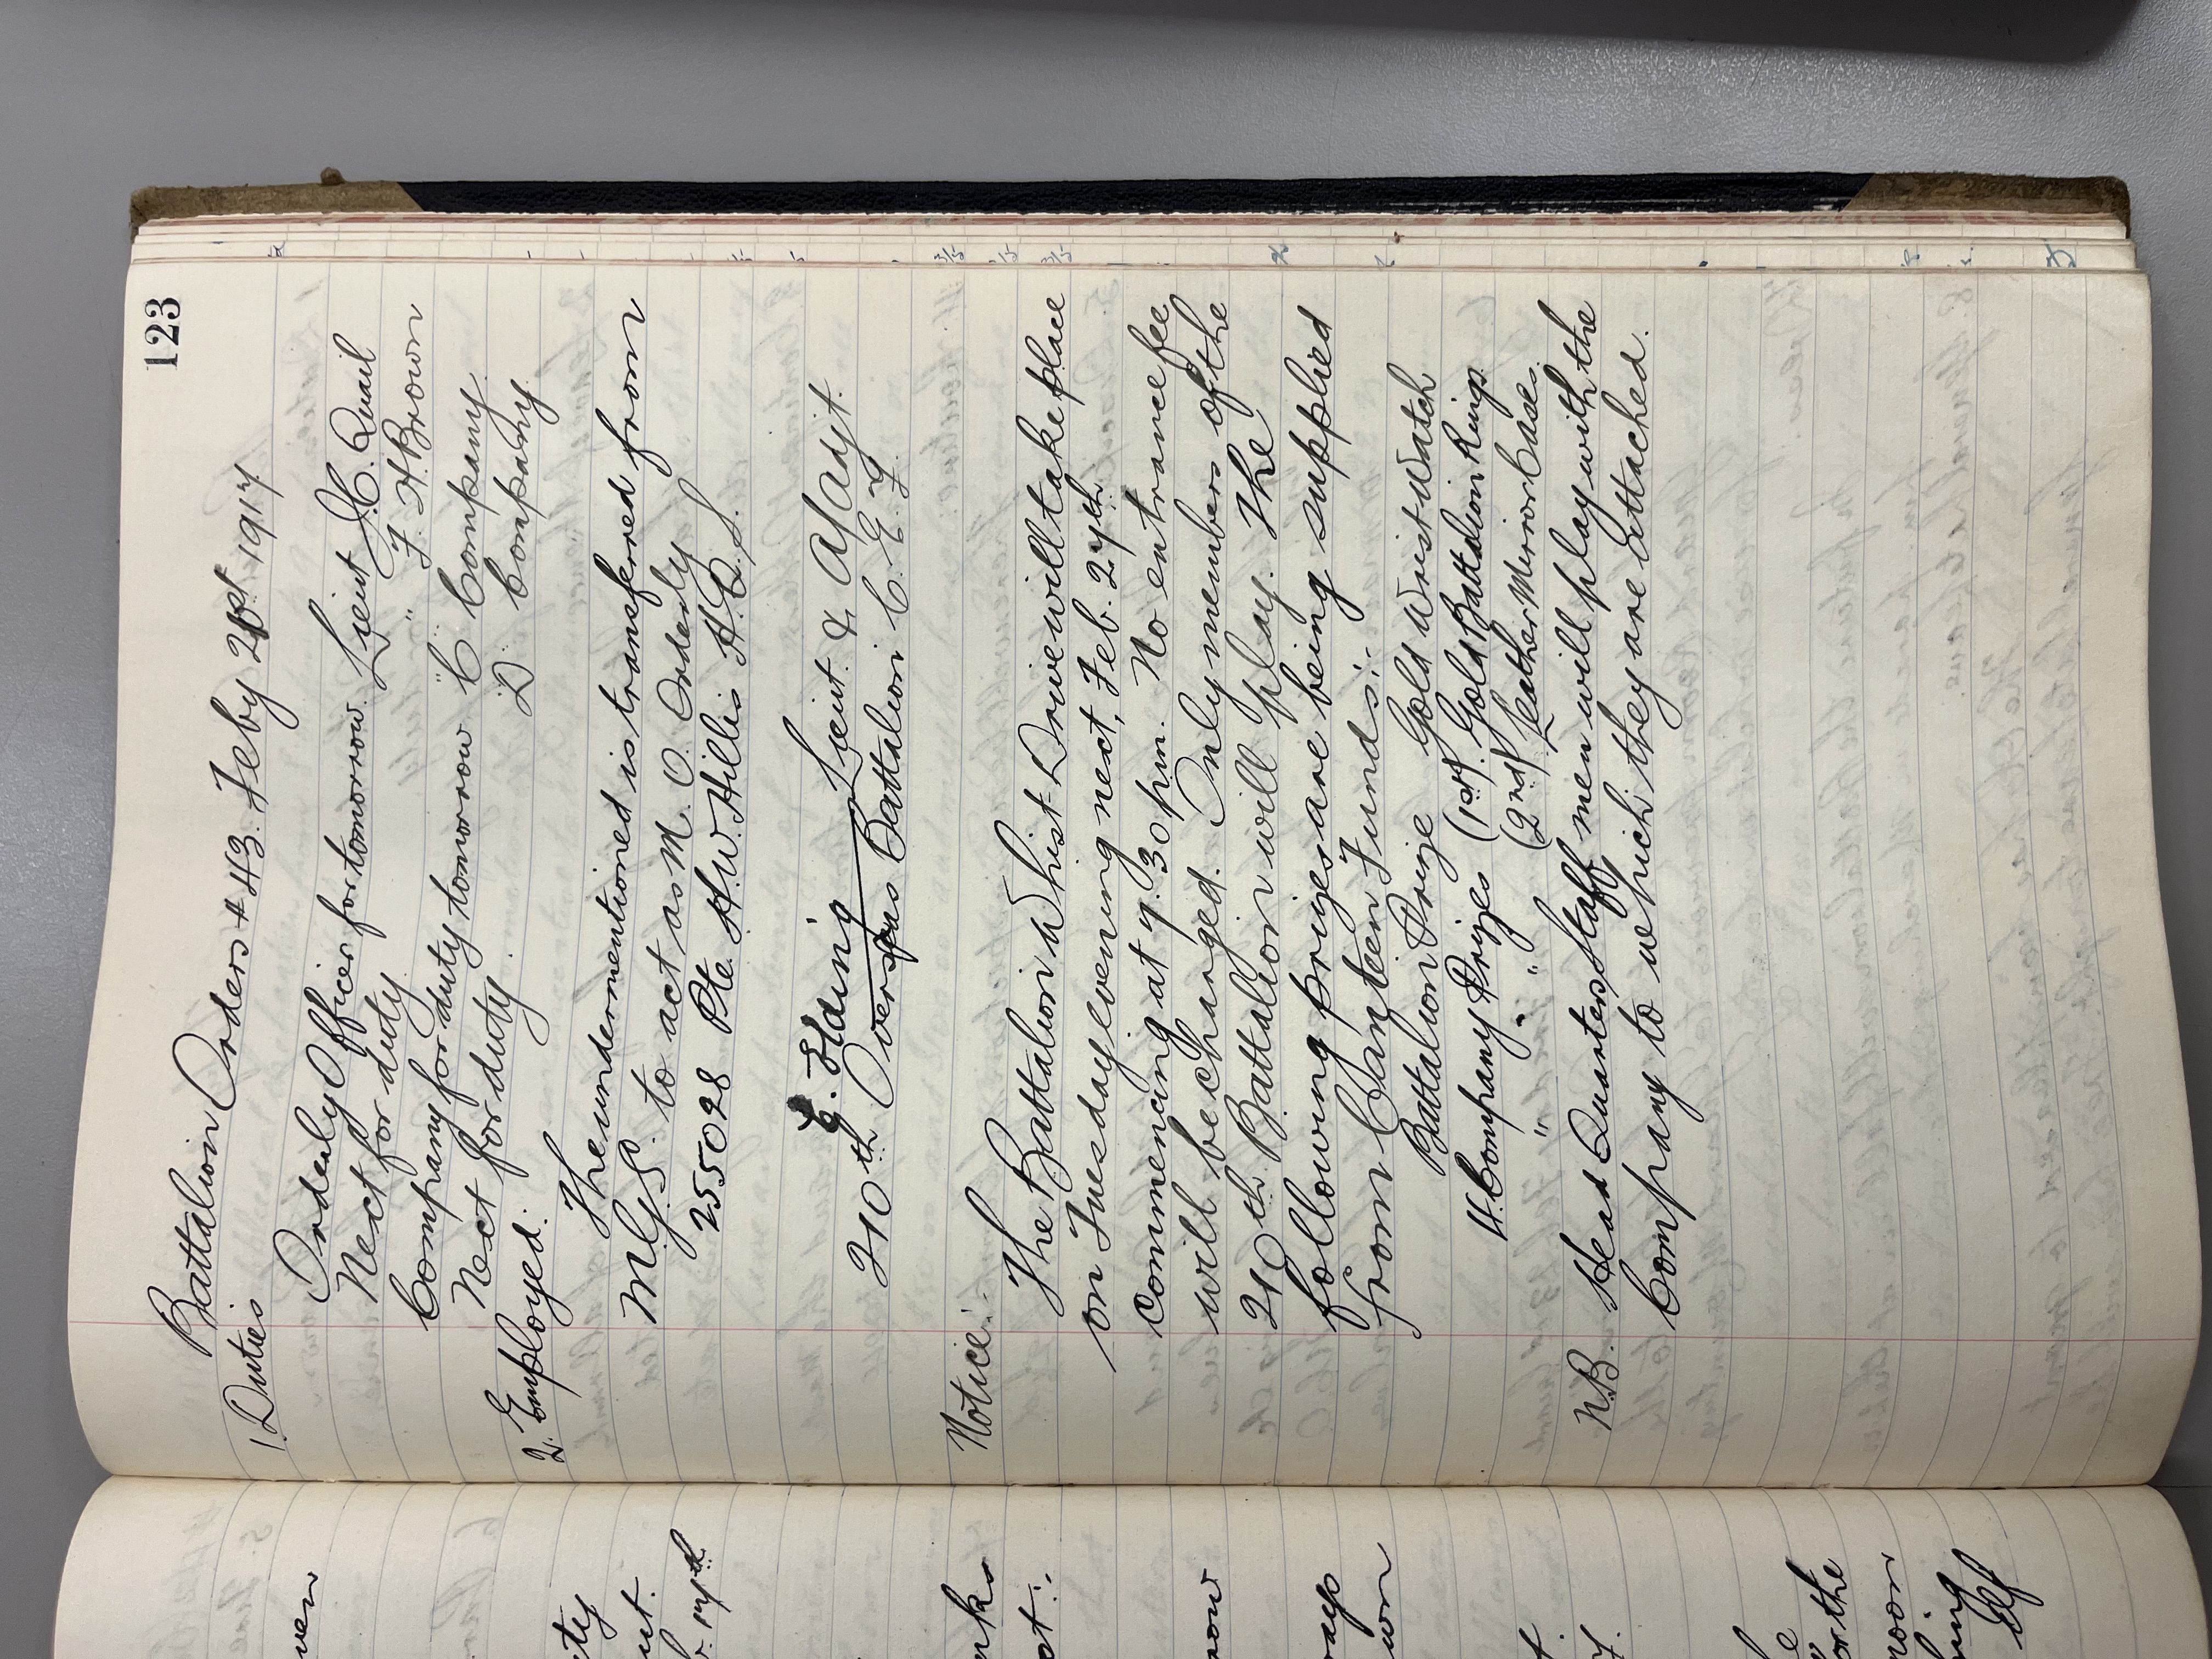 123
Battalion Orders # 43. Feby 21st 1917
1. Duties
Orderly Officer for tomorrow. Lieut J.C. Quail
Next for duty " F. H. Brown
Company for duty tomorrow "C" Company
Next for duty. "D" Company
2. Employed:
The undermentioned is transferred from
M.G.S. to act as M. O. Orderly
255028 Pte. H.W. Hillis H.Q.S.
E. Elding Lieut. & A/Adjt.
210th Overseas Battalion C.E.F.
Notice:-
The Battalion Whist Drive will take place
on Tuesday evening next, Feb. 27th
commencing at 7.30 p.m. No entrance fee
will be charged. Only members of the
210th Battalion will play. The
following prizes are being supplied
from Canteen Funds:-
Battalion Prize Gold Wrist Watch
4. Company Prizes (1st) Gold Battalion Rings.
" " " (2nd) Leather Mirror Cases.
N.B. Head Quarters Staff men will play with the
Company to which they are attached.